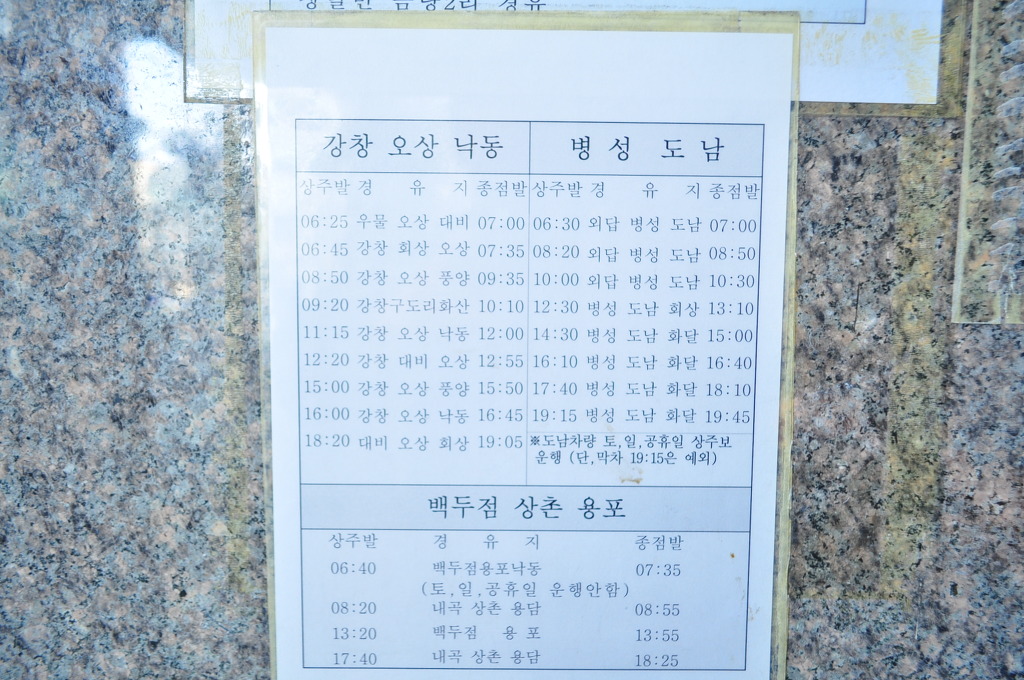 경유
강창 오상 낙동
상주발 경 유 지 종점발
06:25 우물 오상 대비 07:00
06:45 강창 회상 오상 07:35
08:50 강창 오상 풍양 09:35
09:20 강창구도리화산 10:10
11:15 강창 오상 낙동 12:00
12:20 강창 대비 오상 12:55
15:00 강창 오상 풍양 15:50
16:00 강창 오상 낙동 16:45
18:20 대비 오상 회상 19:05
병성 도남
상주발 경 유 지 종점발
06:30 외답 병성 도남 07:00
08:20 외답 병성 도남 08:50
10:00 외답 병성 도남 10:30
12:30 병성 도남 회상 13:10
14:30 병성 도남 화달 15:00
16:10 병성 도남 화달 16:40
17:40 병성 도남 화달 18:10
19:15 병성 도남 화달 19:45
※도남차량 토,일,공휴일 상주보
운행 (단,막차 19:15은 예외)
백두점 상촌 용포
상주발 경 유 지 종점발
06:40 백두점용포낙동 07:35
(토,일,공휴일 운행안함)
08:20 내곡 상촌 용담 08:55
13:20 백두점 용 포 13:55
17:40 내곡 상촌 용담 18:25